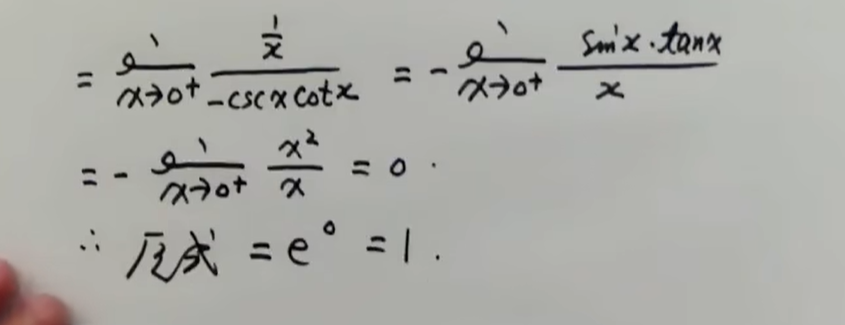 = lim x→0+ (1/x)/(-cscxcotx) = - lim x→0+ (sinx·tanx)/x
= - lim x→0+ x²/x = 0.
∴ 原式 = e⁰ = 1.